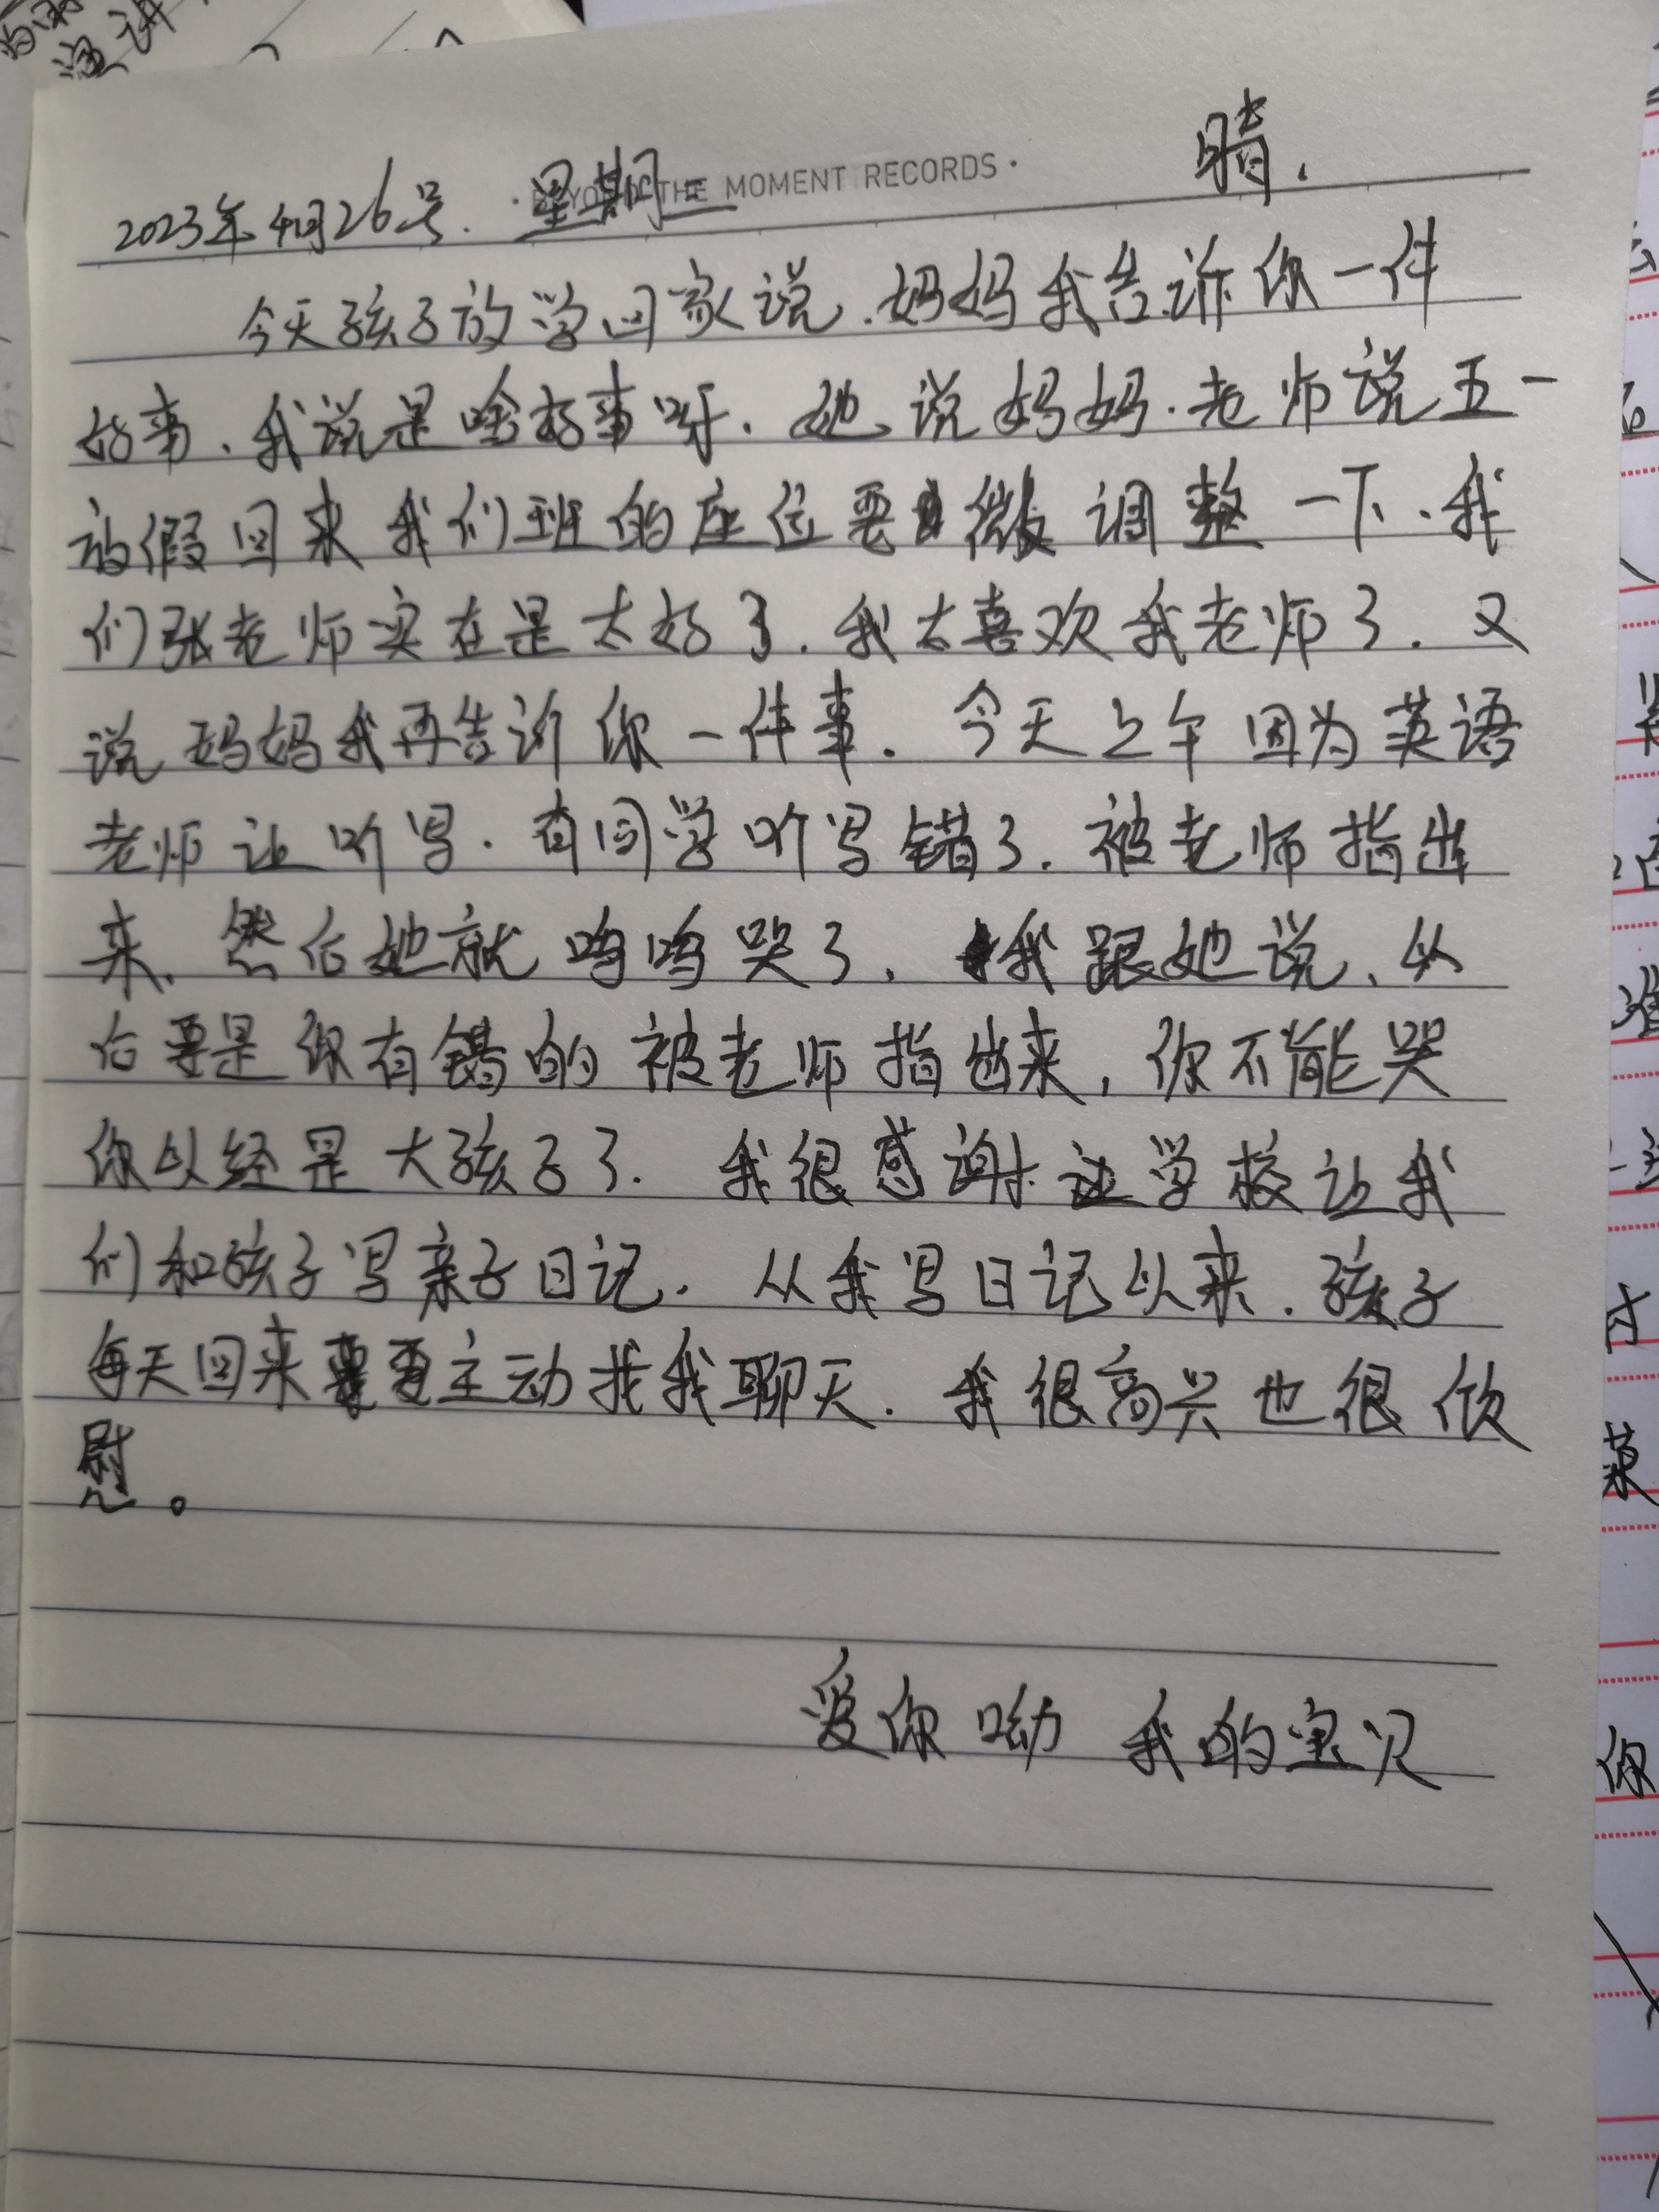 2023年4月26号. 星期三 晴.
THE MOMENT RECORDS
今天孩子放学回家说.妈妈我告诉你一件
好事、我说是啥好事呀.她说妈妈.老师说五一
放假回来我们班的座位要微调整一下.我
们张老师实在是太好了.我太喜欢我老师了.又
说妈妈我再告诉你一件事.今天上午因为英语
老师让听写.有同学听写错了.被老师指出
来、然后她就呜呜哭了,我跟她说、以
后要是你有错的被老师指出来,你不能哭
你以经是大孩子了.我很感谢让学校让我
们和孩子写亲子日记.从我写日记以来.孩子
每天回来要主动找我聊天.我很高兴也很欣
慰。
爱你呦 我的宝贝